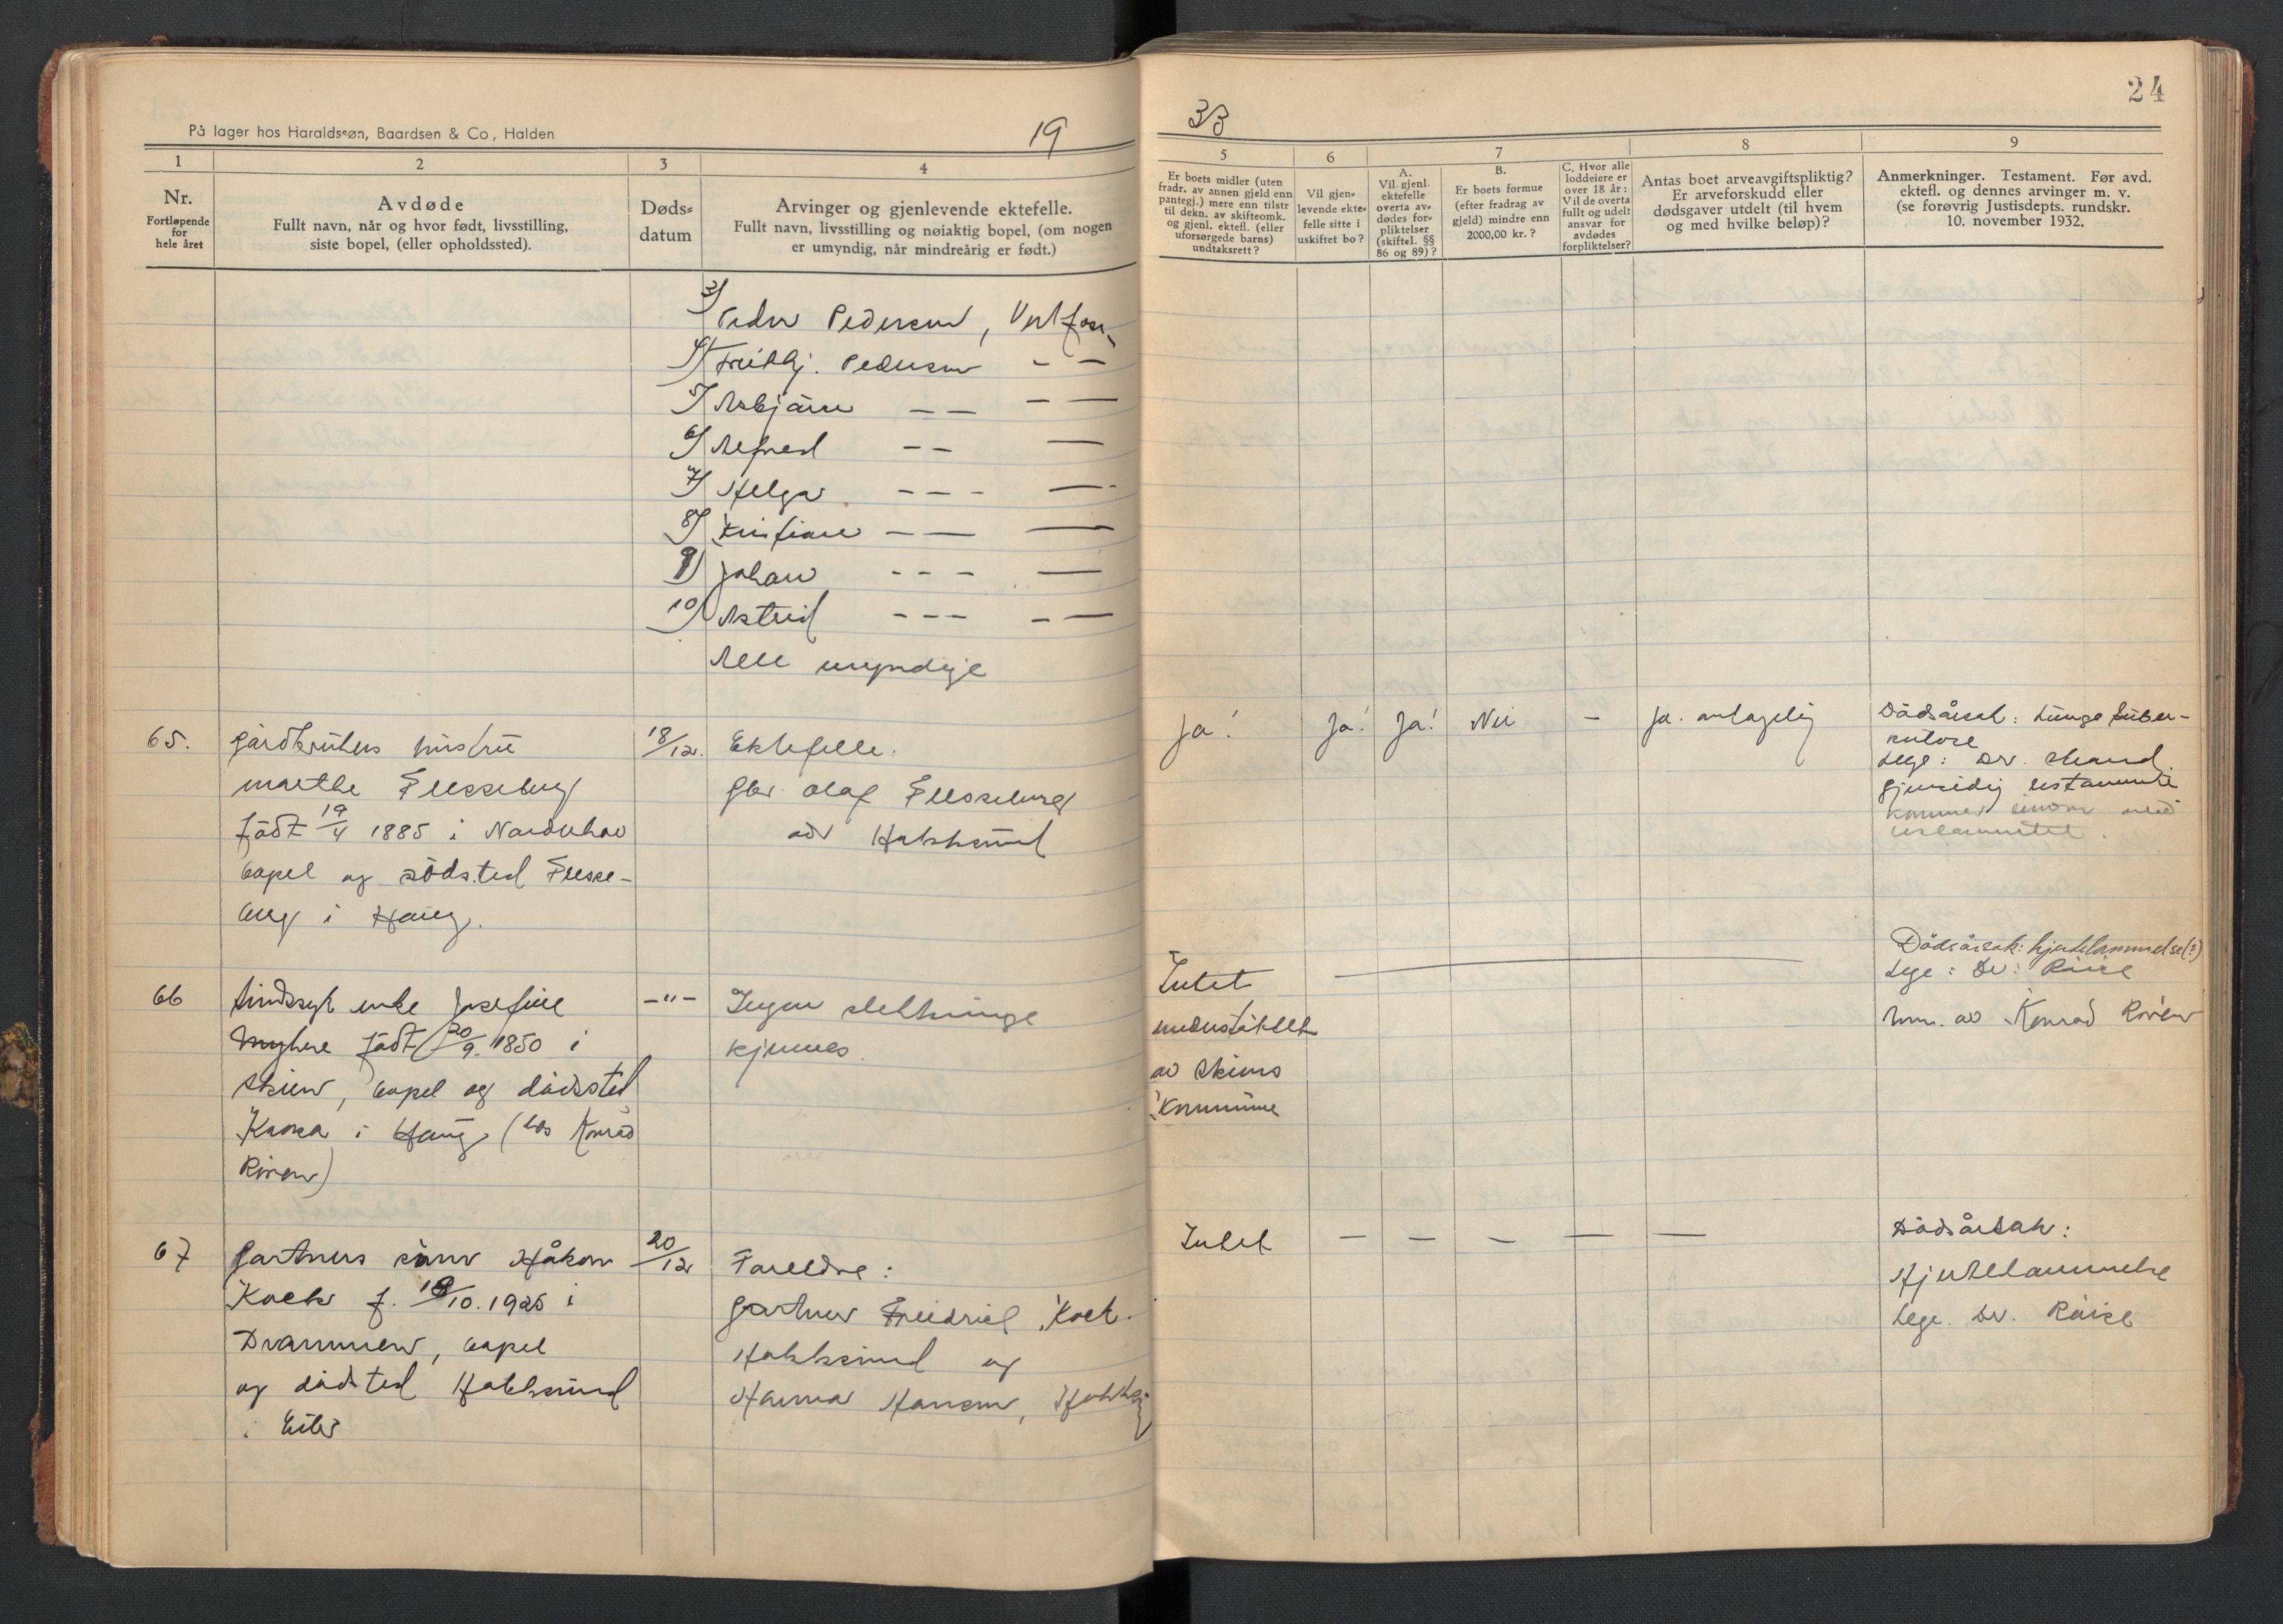 På lager hos Haraldssøn, Baardsen & Co, Halden
19
1 2 3 4
Nr.
Fortløpende
for
hele året
Avdøde
Fullt navn, når og hvor født, livsstilling,
siste bopel, (eller opholdssted).
Døds-
datum
Arvinger og gjenlevende ektefelle.
Fullt navn, livsstilling og nøiaktig bopel, (om nogen
er umyndig, når mindreårig er født.)
3) Peder Pedersen,
4) Frithj. Pedersen - -
5) Asbjørn - - - -
6) Alfred - - -
7) Helga - - - - -
8) Kristian - - -
9) Johan - - - -
10) Astrid - - - - -
Alle umyndige
65. Gårdbrukers hustru
Marthe Flesseberg
född 19/4 1885 i Norderhov
bopel og dödsted Flesse-
berg i Haug.
18/12.
Ektefelle:
Gbr Olaf Flesseberg
adr Hokksund
66 Sindssyk enke Josefine
Myhre född 20/9. 1850 i
Skien, bopel og dödsted
i Haug (hos Konrad
Rören)
-"-
Ingen slektninge
kjennes.
67 Gartners sönn Håkon
Koch f. 18/10. 1925 i
Drammen, bopel
og dödsted Hokksund
i Eiker
20/12
Foreldre:
Gartner Freidrich Koch.
Hokksund og
Hanna Hansen,
24
33
5 6 7 8 9
Er boets midler (uten
fradr. av annen gjeld enn
pantegj.) mere enn tilstr
til dekn. av skifteomk.
og gjenl. ektefl. (eller
uforsørgede barns)
undtaksrett?
Vil gjen-
levende ekte-
felle sitte i
uskiftet bo?
A.
Vil gjenl.
ektefelle
overta av-
dødes for-
pliktelser
(skiftel. §§
86 og 89)?
B.
Er boets formue
(efter fradrag av
gjeld) mindre enn
2000,00 kr.?
C. Hvor alle
loddeiere er
over 18 år:
Vil de overta
fullt og udelt
ansvar for
avdødes
forpliktelser?
Antas boet arveavgiftspliktig?
Er arveforskudd eller
dødsgaver utdelt (til hvem
og med hvilke beløp)?
Anmerkninger. Testament. Før avd.
ektefl. og dennes arvinger m. v.
(se forøvrig Justisdepts. rundskr.
10. november 1932.
Ja! Ja! Ja! Nei - Ja. antagelig
Dödsårsak: Lunge tuber-
kulose
Lege: Dr. Strand.
gjensidig testamente
kommer innom med
testamentet.
Intet
understöttet
av Skiens
Kommune
Dödsårsak: hjertelammelse(?)
Lege: Dr: Röise
Anm. av Konrad Rören
Intet - - - - -
Dödsårsak:
Hjertelammelse
Lege. Dr. Röise